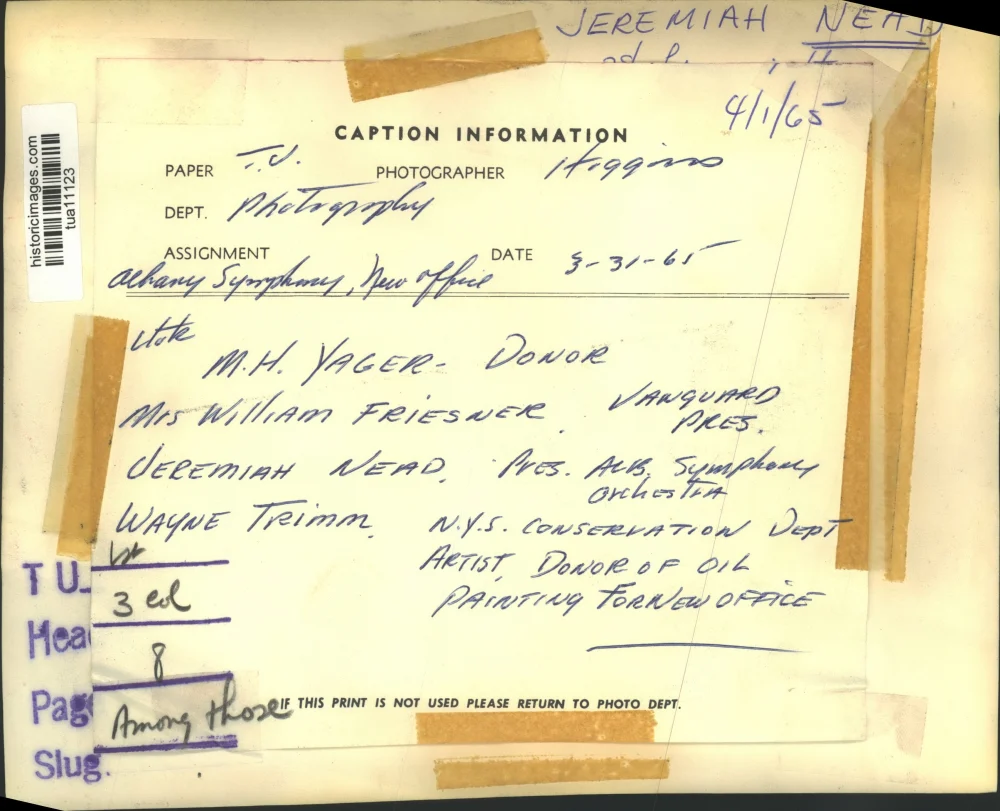 JEREMIAH NEAD
4/1/65
CAPTION INFORMATION
PAPER T.U. PHOTOGRAPHER Higgins
DEPT. Photography
ASSIGNMENT DATE 3-31-65
Albany Symphony, New office
M.H. YAGER - DONOR
Mrs William FRIESNER VANGUARD
PRES.
JEREMIAH NEAD, Pres. ALB. Symphony
Orchestra
WAYNE TRIMM, N.Y.S. CONSERVATION DEPT
ARTIST, DONOR OF OIL
PAINTING FOR NEW OFFICE
T U
3 col
Hea
8
Page
Among those
Slug.
IF THIS PRINT IS NOT USED PLEASE RETURN TO PHOTO DEPT.
historicimages.com
tua11123